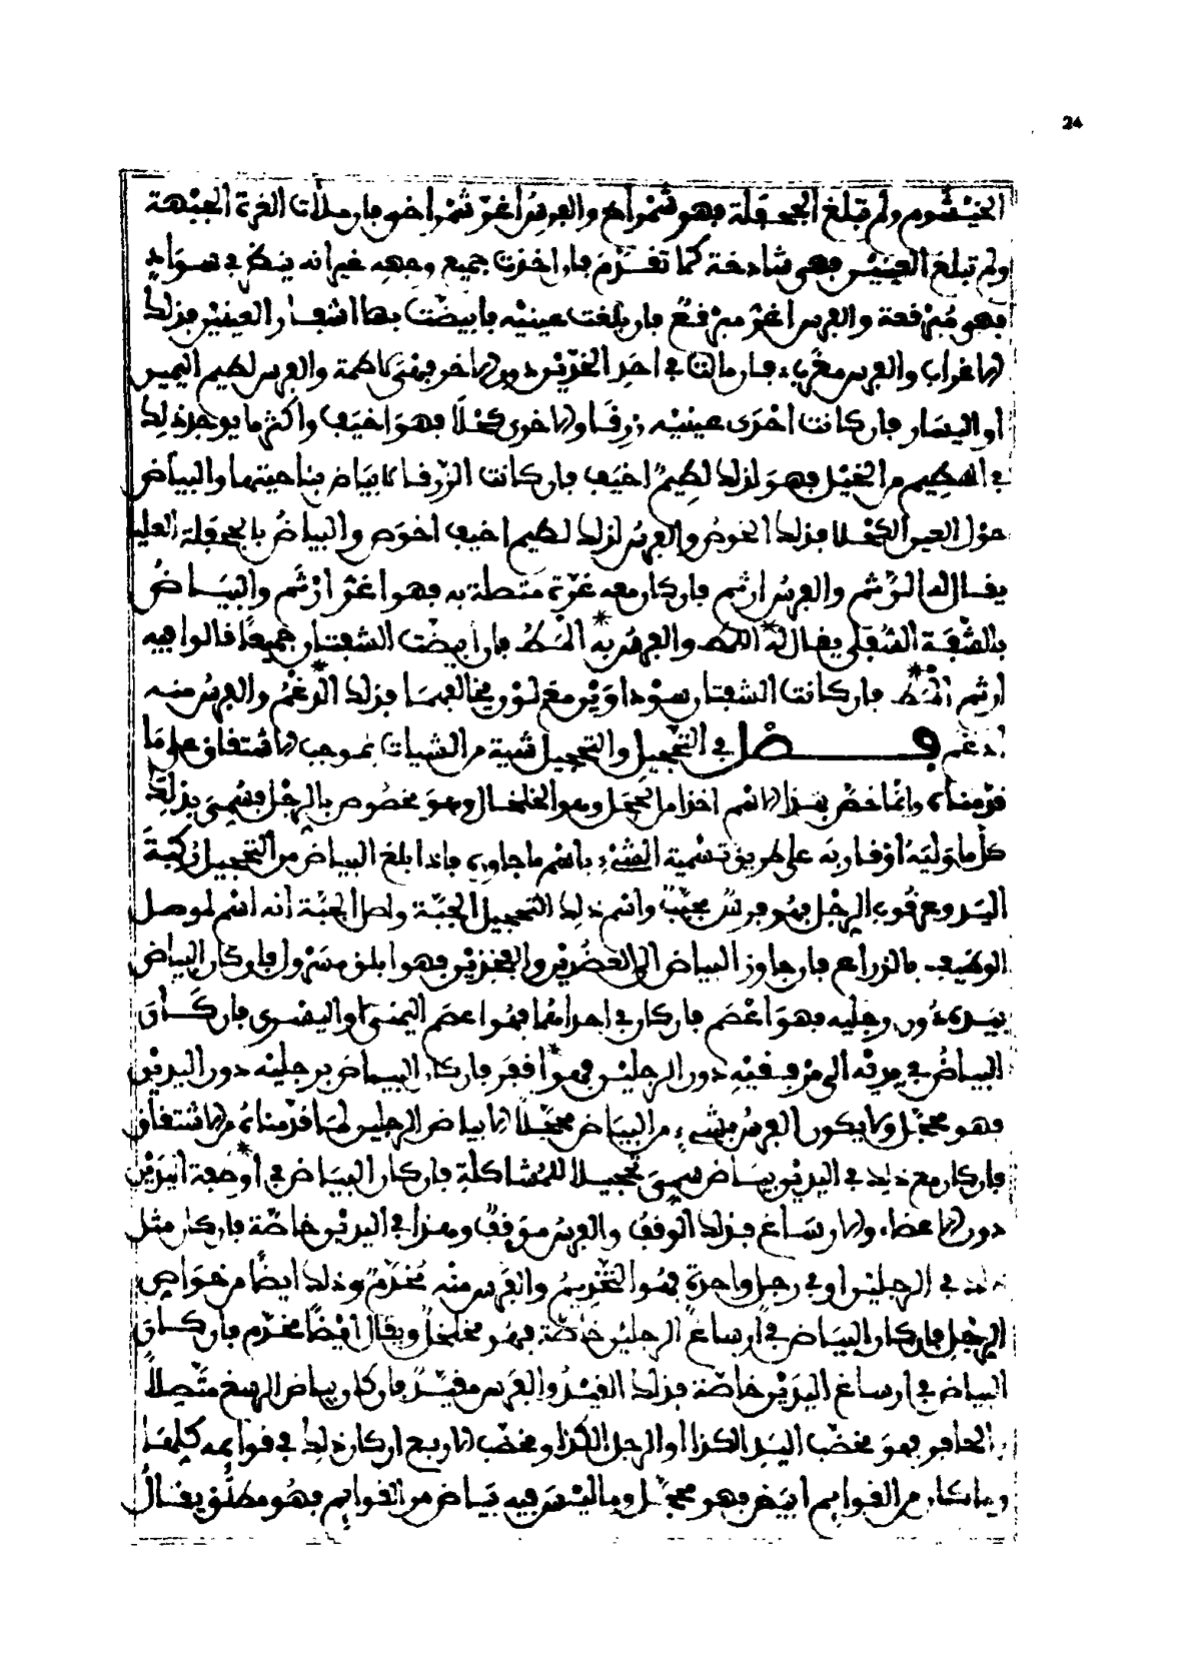 24
الخيشوم ولم تبلغ الجحفلة فهو شمراخ والفرس أغر شمراخي فإن ملأت الغرة الجبهة
ولم تبلغ العينين فهي شادخة كما تقدم فإن اخذت جميع وجهه غير انه ينظر في سواد
فهو مبرقعة والفرس أغر مبرقع فإن بلغت عينيه فابيضت بها اشفار العينين فذلك
الاغراب والفرس مغرب فإن مالت في احد الخدين دون الاخر فهي لاطمة والفرس لطيم اليمين
او اليسار فإن كانت احدى عينيه زرقا والاخرى كحلا فهو اخيف واكثر ما يوجد ذلك
في اللطيم من الخيل فهو لذلك لطيم اخيف فإن كانت الزرقا لا بياض بناحيتها والبياض
حول العين الكحلا فذلك الخوص والفرس لذلك لطيم اخيف اخوص والبياض بالجحفلة العليا
يقال له الرثم والفرس ارثم فإن كان معه غرة متصلة به فهو اغر ارثم والبياض
بالشفة السفلى يقال له اللمظ والفرس به المظ فإن ابيضت الشفتان جميعا قالوا فيه
ارثم المظ فإن كانت الشفتان سوداوين مع لون يخالفهما فذلك الدغم والفرس منه
ادغم فصل في التحجيل والتحجيل شية من الشيات بموجب الاشتقاق على ما
قدمناه وانما خص بهذا الاسم اخذا من الحجل وهو الخلخال وهو مخصوص بالرجل فسمي بذلك
كل ما وليه او قاربه على طريق تسمية الشيء باسم ما جاوره فاذا بلغ البياض من التحجيل ركبة
اليد وعرقوب الرجل فهو فرس مجبب واسم ذلك التحجيل الجبة واصل الجبة أنه اسم لموصل
الوظيف بالذراع فإن جاوز البياض الى العضدين والفخذين فهو ابلق مسرول فإن كان البياض
بيديه دون رجليه فهو اعصم فإن كان في احداهما فهو اعصم اليمنى او اليسرى فإن كان
البياض في يديه الى مرفقيه دون الرجلين فهو اقفز فإن كان البياض برجليه دون اليدين
فهو محجل ولا يكون الفرس بشيء من البياض محجلا الا بياض الرجلين لما قدمناه من الاشتقاق
فإن كان مع ذلك في اليدين بياض سمي تحجيلا للمشاكلة فإن كان البياض في اوظفة اليدين
دون الاعضاء والارساغ فذلك الوقف والفرس موقف وهذا في اليدين خاصة فإن كان مثل
ذلك في الرجلين او في رجل واحدة فهو التخديم والفرس منه مخدم وذلك ايضا من خواص
الرجل فإن كان البياض في ارساغ الرجلين خاصة فهو مخلخل ويقال ايضا مخدم فإن كان
البياض في ارساغ اليدين خاصة فذلك القيد والفرس مقيد فإن كان بياض الرسغ متصلا
بالحافر فهو مخضب اليد الكذا او الرجل الكذا ومخضب الاربع ان كان ذلك في قوائمه كلها
وما كان من القوائم ابيض فهو محجل وما ليس فيه بياض من القوائم فهو مطلق يقال